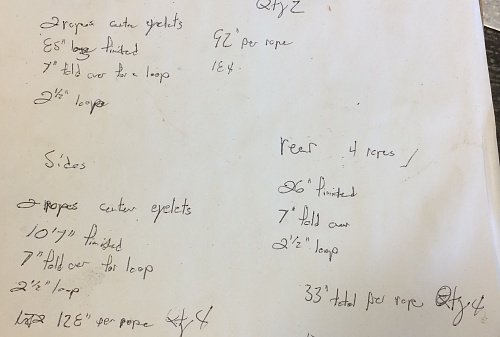 Qty 2
2 ropes center eyelets
85" long finished
92" per rope
7" fold over for a loop
184
2½" loop
Sides
rear 4 ropes
26" finished
7" fold over
2½" loop
33" total per rope Qty. 4
2 ropes center eyelets
10'7" finished
7" fold over for loop
2½" loop
128" per rope Qty. 4